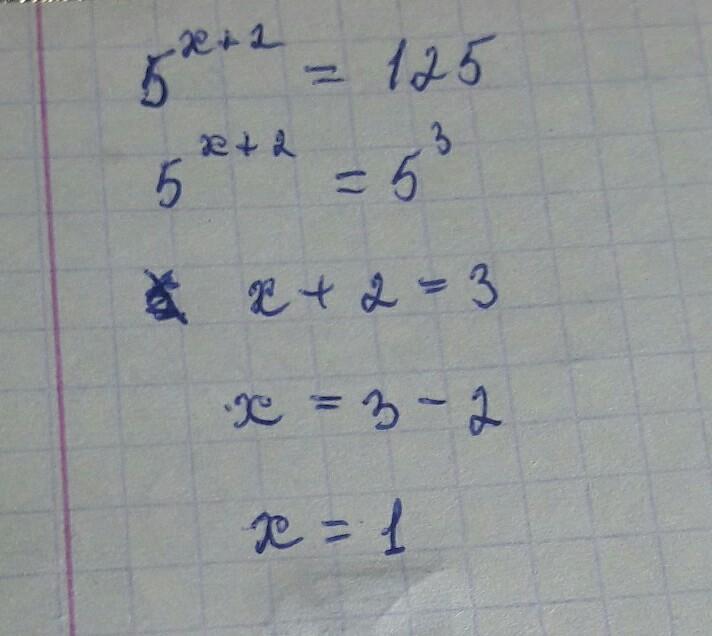 5^{x+2} = 125
5^{x+2} = 5^3
x + 2 = 3
x = 3 - 2
x = 1